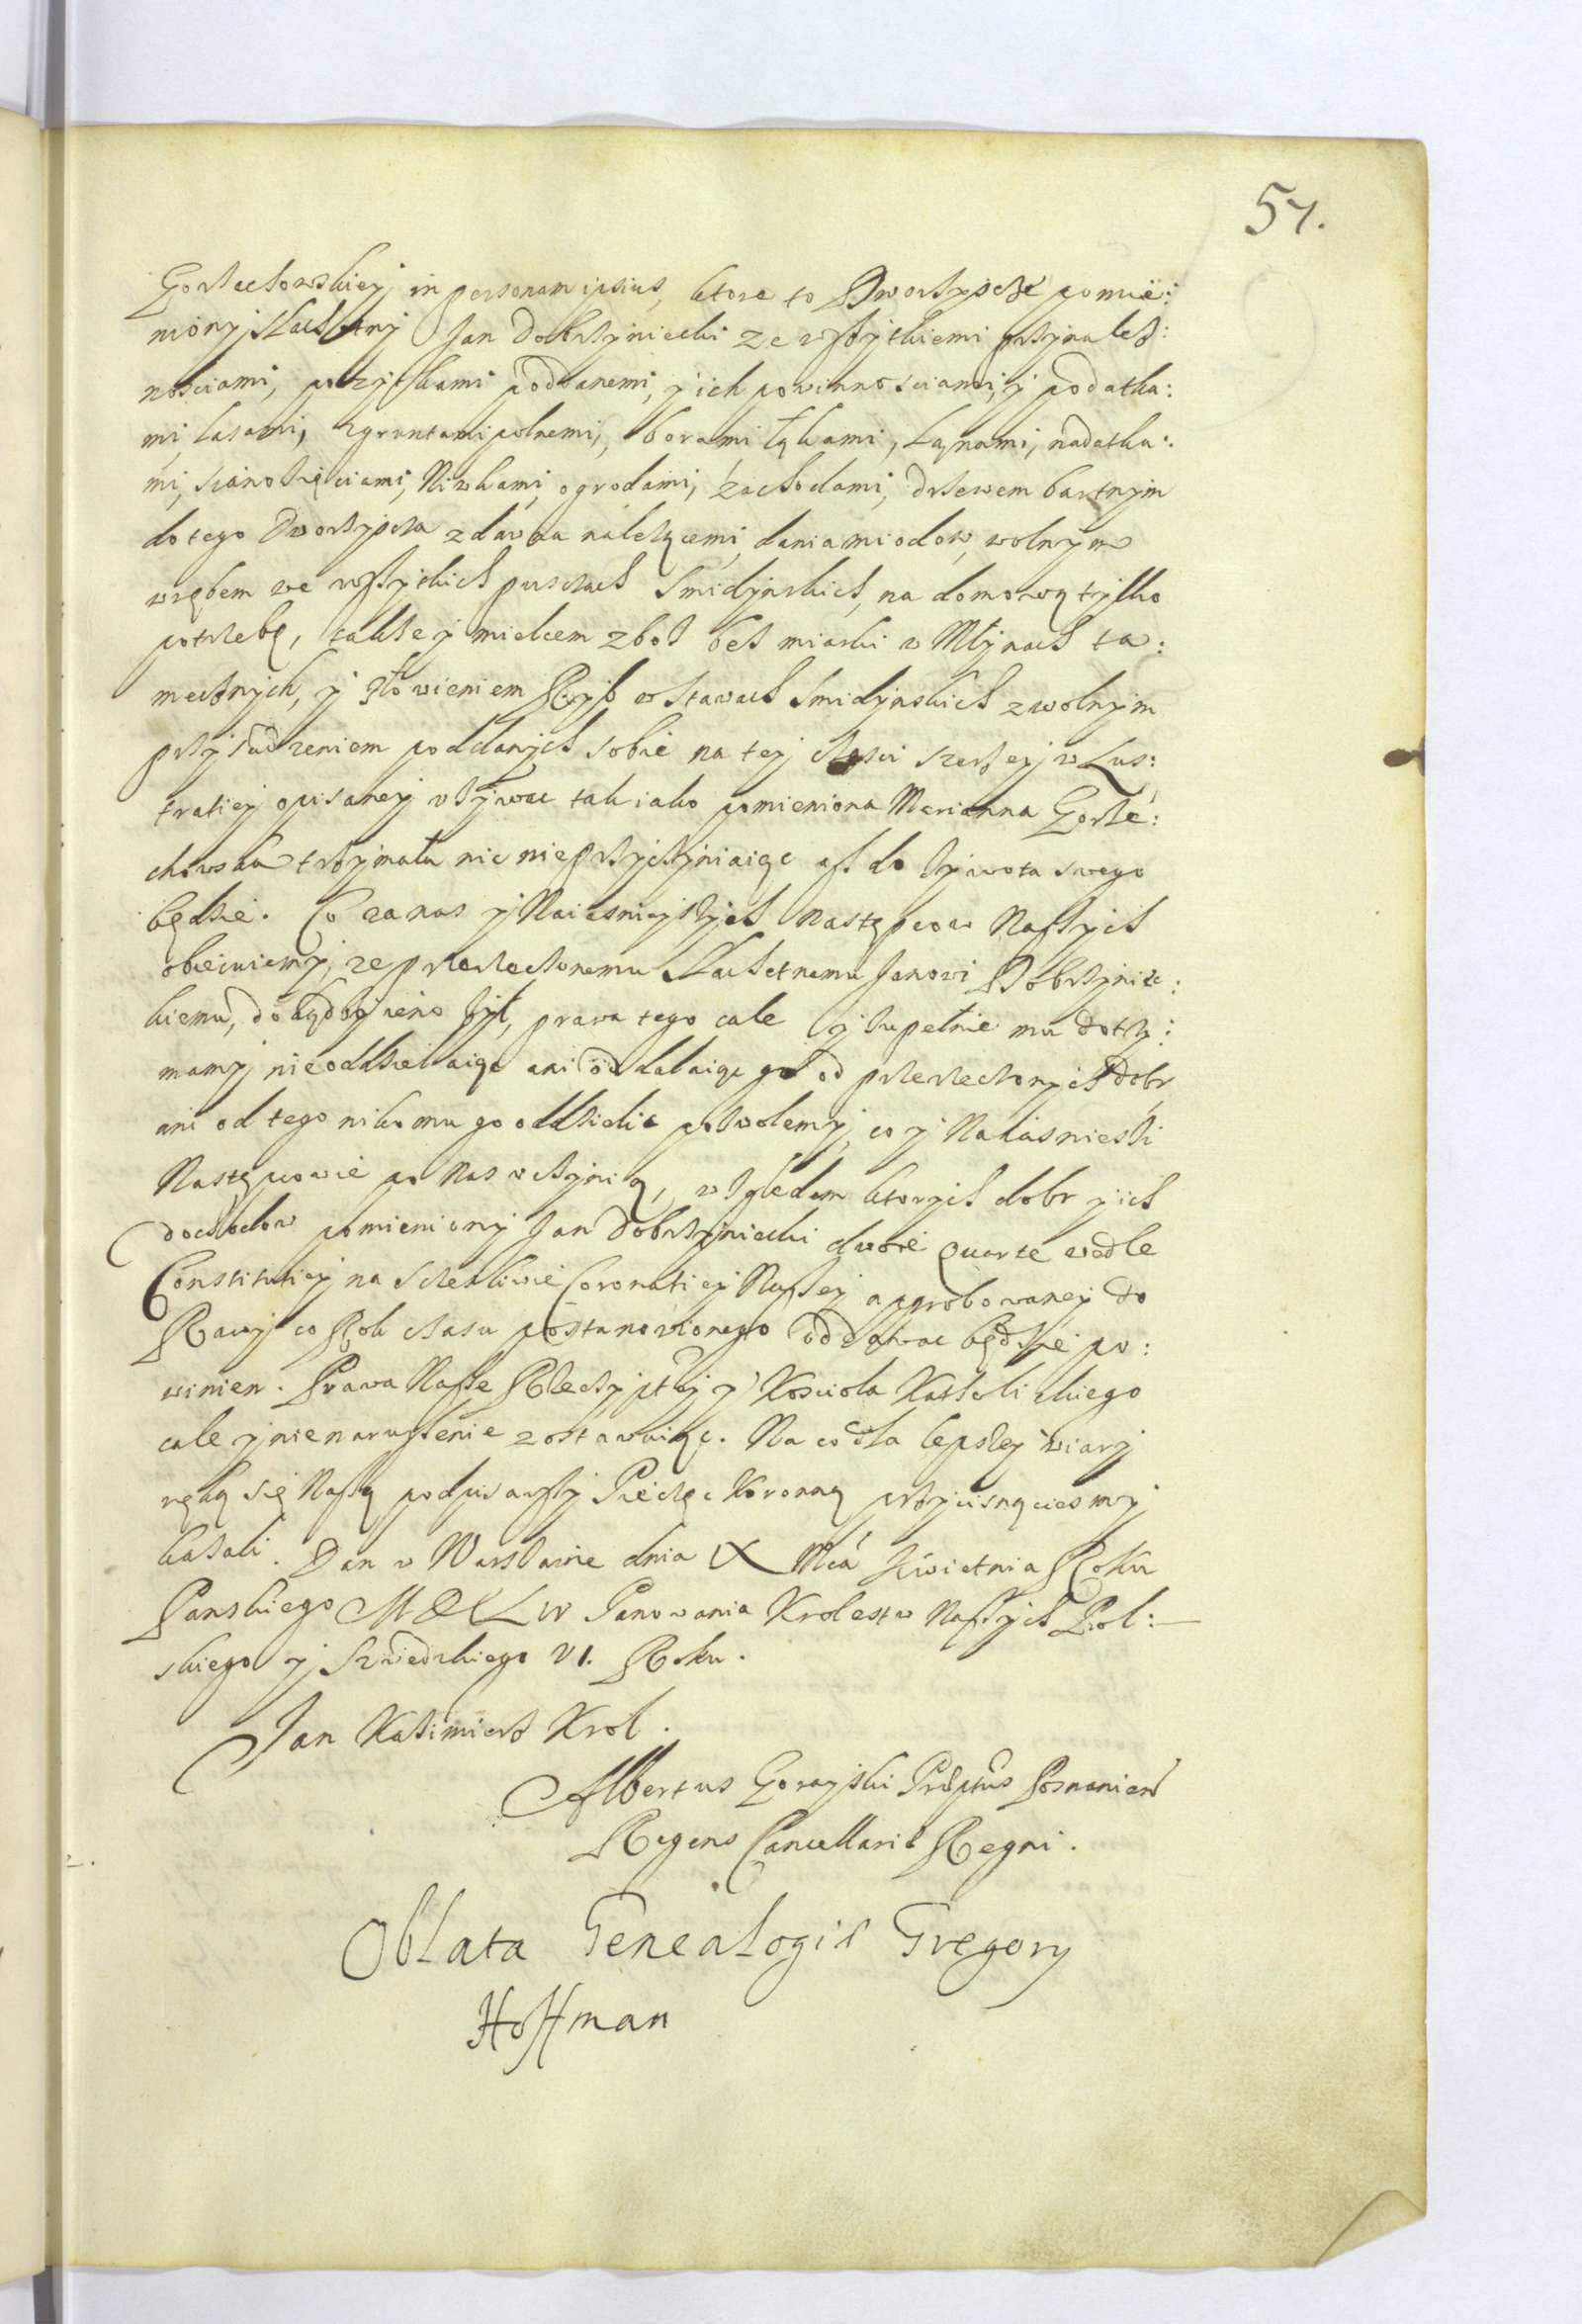 57.
Gorzechowskiey in personam ipsius, ktore to Dworzyscze pomie:
niony Szlachetny Jan Dobrzyniecki ze wszytkiemi przynalesz:
nosciami, pozytkami poddanemi, y ich powinnosciami, y podatka:
mi, lasami, zgruntami polnemi, borami łąkami, Łąnami, nadatka:
mi, sianożęciami, Niwkami, ogrodami, zachodami, drzewem bartnym
do tego Dworzyscza zdawna należącemi, dania miodow, wolnym
wrębem we wszytkich puszczach Smidynskich, na domową tylko
potrzebę, także y mielcem zboż bez miarki w Młynach ta:
mecznych, y złowieniem Ryb w stawach Smidynskich z wolnym
przysądzeniem poddanych sobie na tey części szerzey w Lus:
tratiey opisaney vżywac tak iako pomieniona Marianna Gorze:
chowska trzymała nic nieprzyczyniaiąc asz do żywota swego
będzie. Co za nas y Naiasnieyszych następcow Naszych
obiecuiemy, ze przerzeczonemu Szlachetnemu Janowi Dobrzyniec:
kiemu, dokądby ieno żył, prawa tego cale y zupełnie mu dotrzy:
mamy nieoddzielaiąc ani oddalaiąc go od przerzeczonych dobr,
ani od tego nikomu go oddzielic pozwolemy, co y Naiasnieszi
Następcowie po Nas vczynią, względem ktorych dobr y ich
dochodow pomieniony Jan Dobrzyniecki dwoie quarte wedle
Constitutiey na Szczesliwie Coronatiey Naszey approbowaney do
Rawy co Rok czasu postanowionego oddawac będzie po:
winien. Prawa Nasze Rzeczypltey y Kościoła Katholickiego
cale y nienaruszenie zostawuiąc. Na co dla lepszey wiary
ręką się Naszą podpisawszy Pieczęc Koronną przycisnącesmy
kazali. Dan w Warszawie dnia IX Mca Kwietnia Roku
Panskiego MDCLIV Panowania Krolestw Naszych Pol:
skiego y Szwedzkiego VI. Roku.
Jan Kazimierz Krol.
Albertus Gorayski Prptus Posnanien
Regens Cancellariæ Regni.
Oblata Genealogiæ Gregory
Hoffman